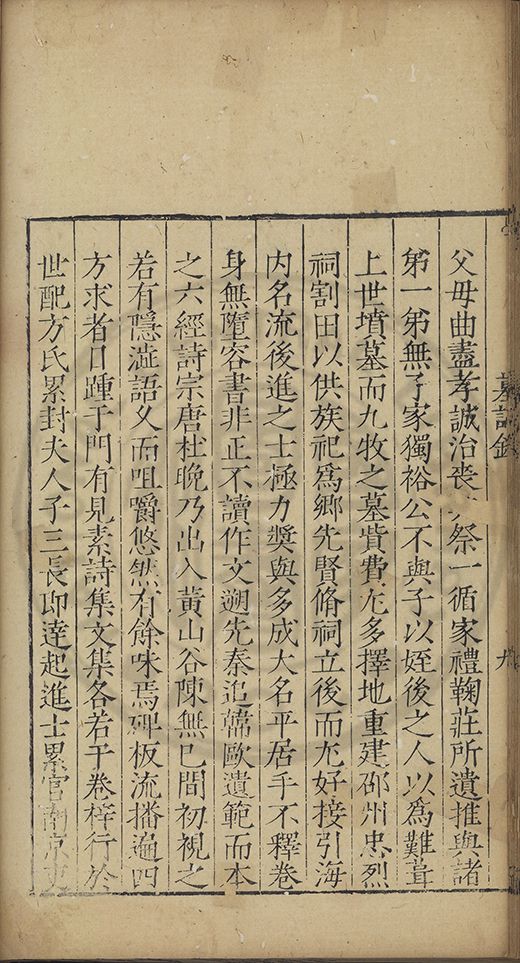 墓 九
父母曲盡孝誠治喪祭一循家禮鞠莊所遺推與諸
弟一弟無子家獨裕公不與子以姪後之人以爲難葺
上世墳墓而九牧之墓貲費尤多擇地重建邵州忠烈
祠割田以供族祀爲鄉先賢脩祠立後而尤好接引海
内名流後進之士極力奬與多成大名平居手不釋卷
身無墮容書非正不讀作文遡先秦追韓歐遺範而本
之六經詩宗唐杜晚乃出入黃山谷陳無巳間初視之
若有隱澁語乆而咀嚼悠然有餘味焉碑板流播遍四
方求者日踵于門有見素詩集文集各若干卷梓行於
世配方氏累封夫人子三長即達起進士累官南京吏